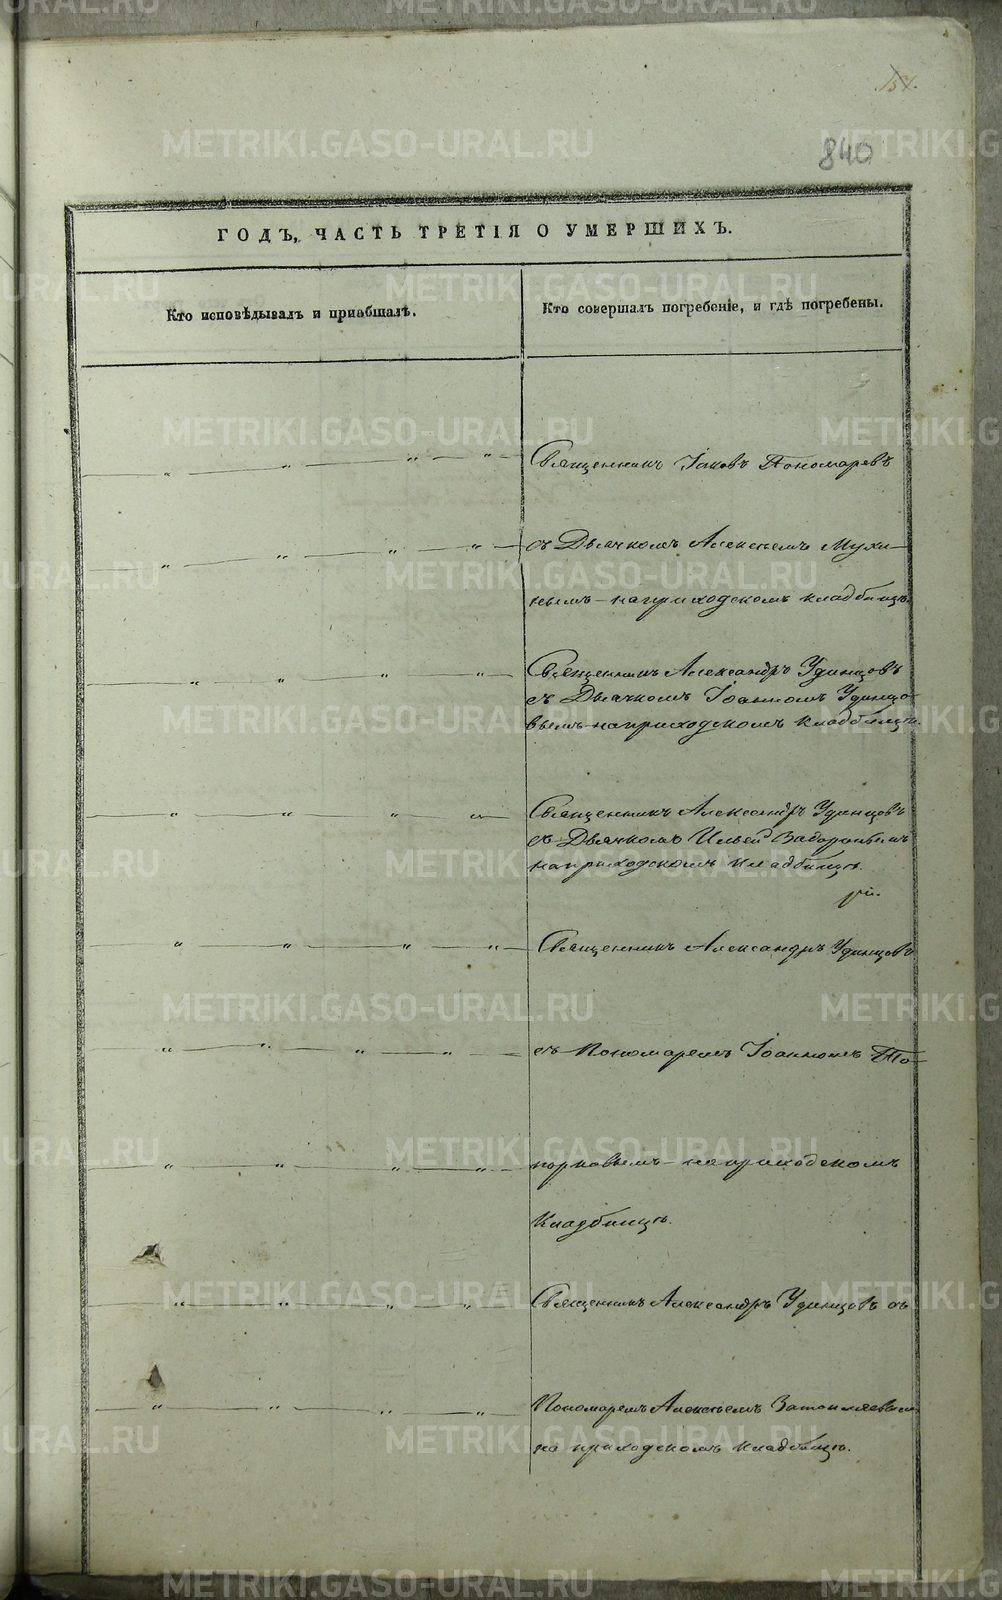 840
ГОДЪ, ЧАСТЬ ТРЕТІЯ О УМЕРШИХЪ.
Кто исповѣдывалъ и пріобщалъ.
Кто совершалъ погребеніе, и гдѣ погребены.
Священникъ Іаковъ Пономаревъ
съ Дьячкомъ Алексѣемъ Мухи-
нымъ на приходскомъ кладбищѣ.
Священникъ Александръ Удинцовъ
съ Дьячкомъ Іоанномъ Удинцо-
вымъ на приходскомъ кладбищѣ.
Священникъ Александръ Удинцовъ
съ Дьячкомъ Ильей
на приходскомъ кладбищѣ.
Священникъ Александръ Удинцовъ
съ Пономаремъ Іоанномъ По-
на приходскомъ
кладбищѣ.
Священникъ Александръ Удинцовъ съ
Пономаремъ Алексѣемъ
на приходскомъ кладбищѣ.
METRIKI.GASO-URAL.RU